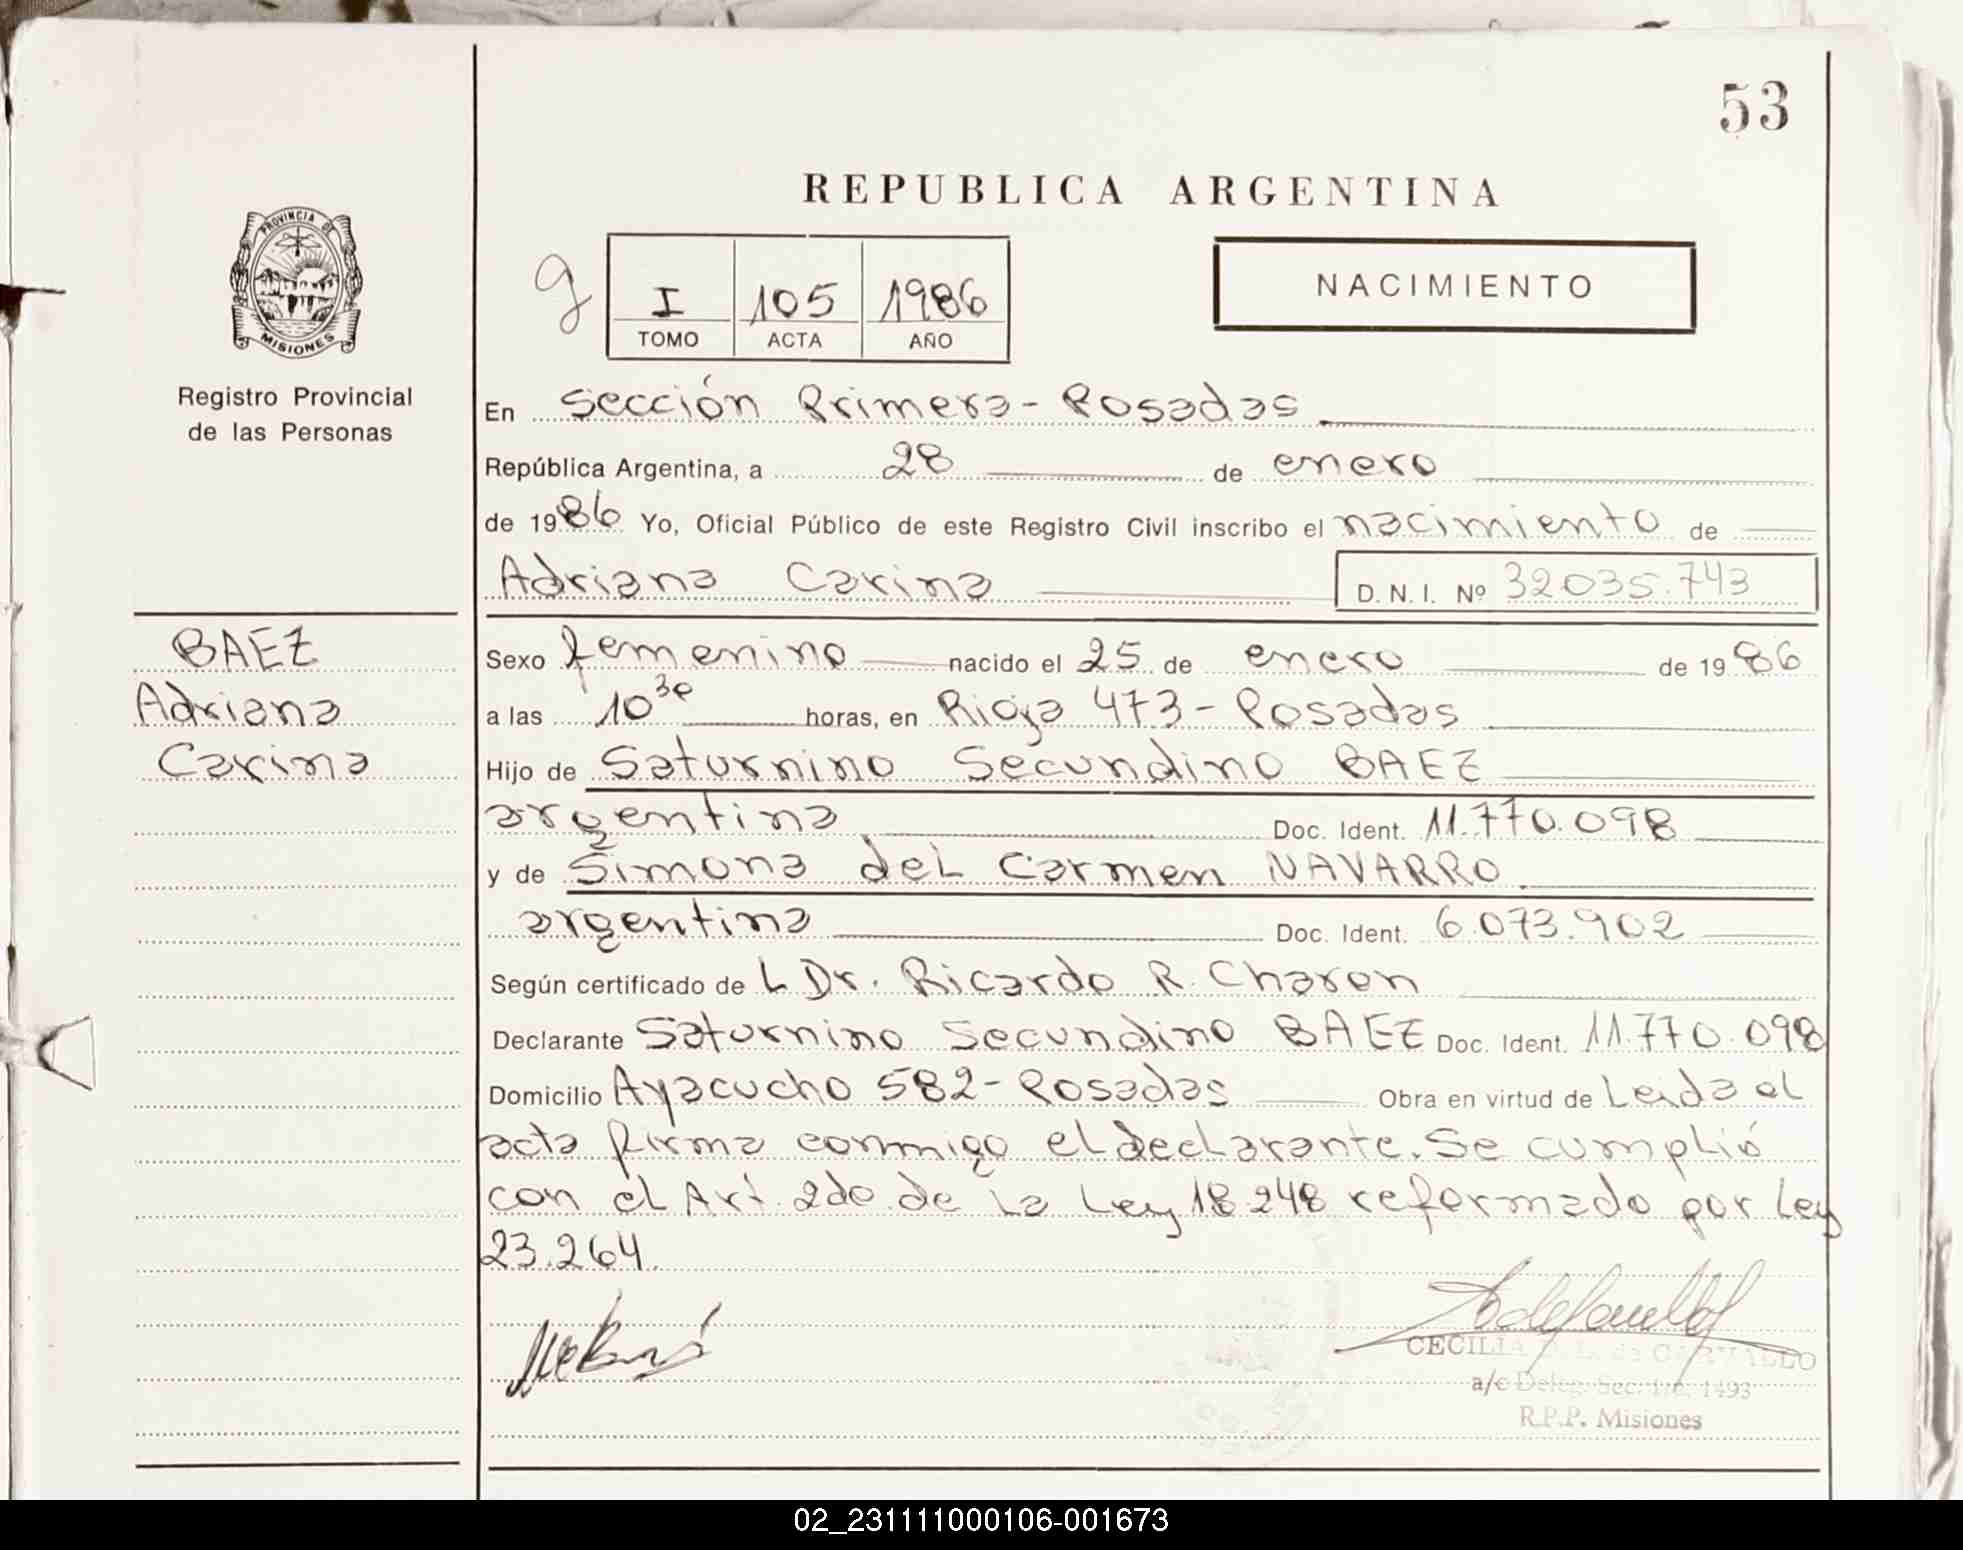 53
REPUBLICA ARGENTINA
PROVINCIA DE
MISIONES
Registro Provincial
de las Personas
g
I 105 1986
TOMO ACTA AÑO
NACIMIENTO
En Sección Primera - Posadas
República Argentina, a 28 de enero
de 1986 Yo, Oficial Público de este Registro Civil inscribo el nacimiento de
Adriana Carina D. N. I. Nº 32035.743
BAEZ
Adriana
Carina
Sexo femenino nacido el 25 de enero de 1986
a las 10 30 horas, en Rioja 473 - Posadas
Hijo de Saturnino Secundino BAEZ
argentina Doc. Ident. 11.770.098
y de Simona del Carmen NAVARRO
argentina Doc. Ident. 6.073.902
Según certificado de L Dr. Ricardo R. Charon
Declarante Saturnino Secundino BAEZ Doc. Ident. 11.770.098
Domicilio Ayacucho 582 - Posadas Obra en virtud de Leida el
acta firma conmigo el declarante. Se cumplió
con el Art. 2do de la Ley 18.248 reformado por Ley
23.264.
CECILIA de CARVALLO
a/c Deleg. Sec. 1ra. 1493
R.P.P. Misiones
02_231111000106-001673